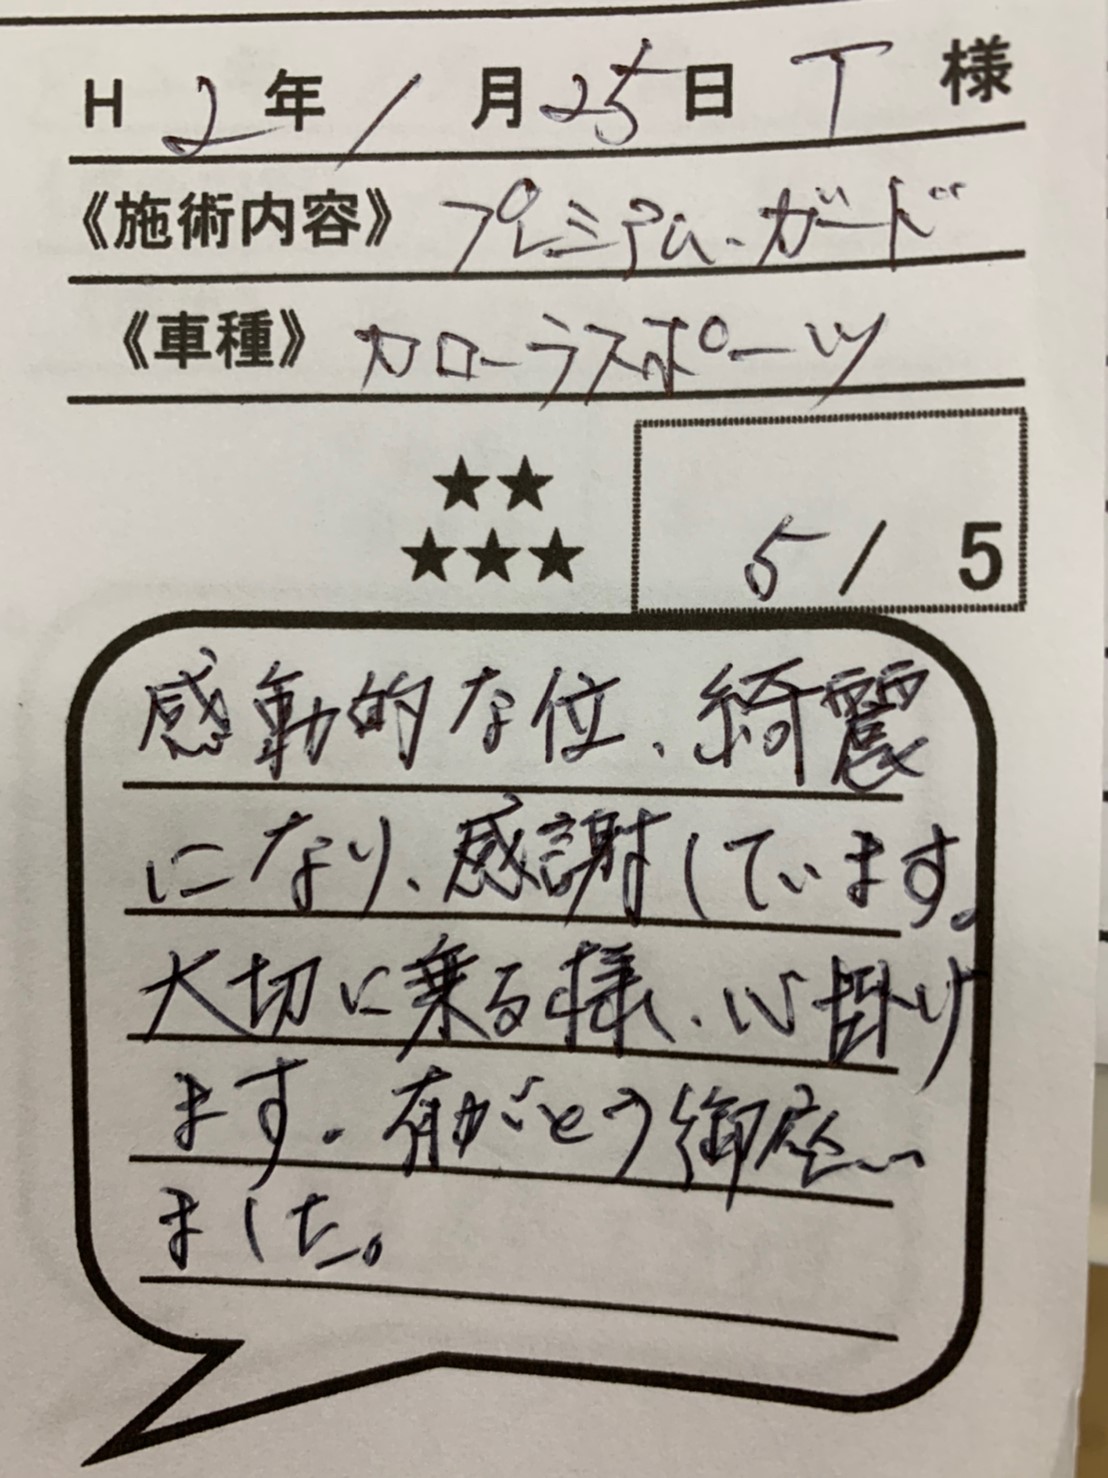 H 2年 1月25日 T 様
《施術内容》 プレミアム・ガード
《車種》 カローラスポーツ
★★
★★★
5/5
感動的な位、綺震
になり、感謝しています。
大切に乗る様、心掛け
ます。有がとう御座い
ました。